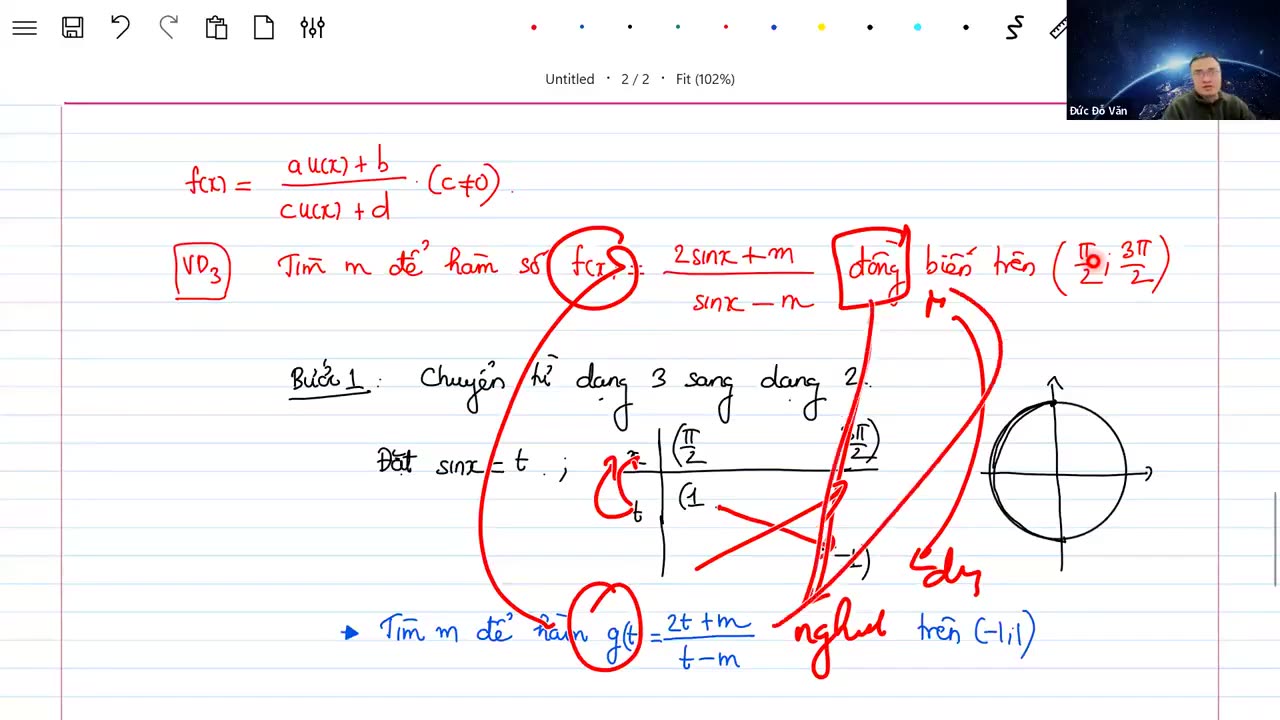 Untitled · 2 / 2 · Fit (102%)
Đức Đỗ Văn
f(x) = \frac{au(x) + b}{cu(x) + d} . (c≠0).
VD3 Tìm m để hàm số f(x) = \frac{2sinx + m}{sinx - m} đồng biến trên (\frac{π}{2}; \frac{3π}{2})
Bước 1 : Chuyển từ dạng 3 sang dạng 2.
Đặt sinx = t . ; x | (\frac{π}{2} \frac{3π}{2})
t | (1 -1)
Tìm m để hàm g(t) = \frac{2t + m}{t - m} nghịch trên (-1;1)